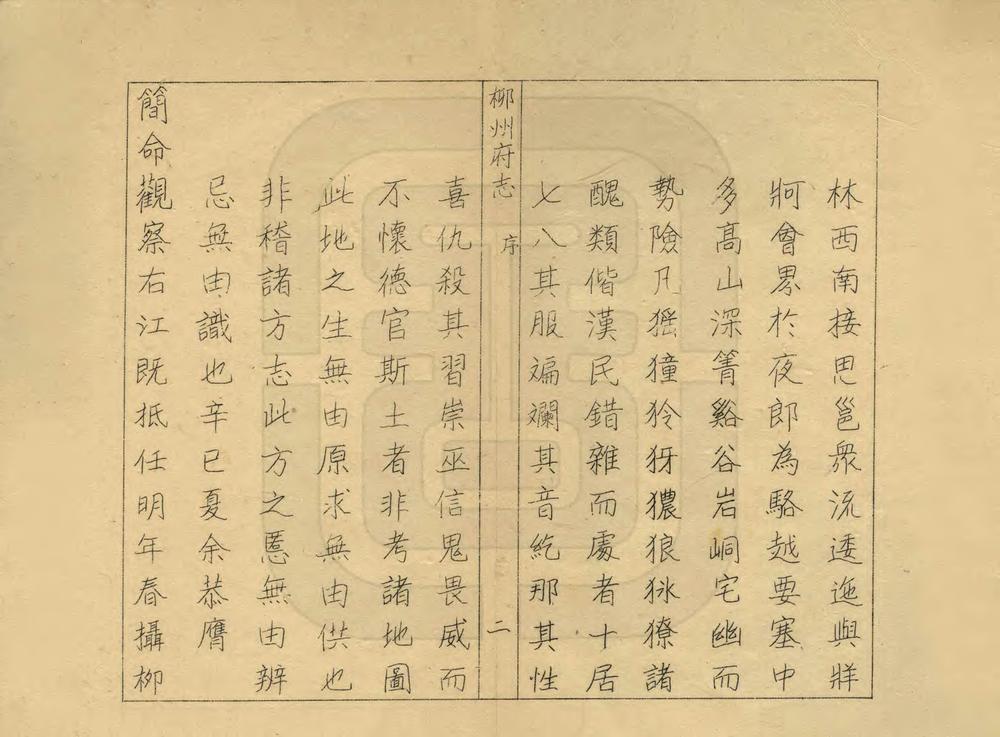 林西南接思邕眾流逶迤與牂
牁會界於夜郎為駱越要塞中
多高山深箐谿谷岩峒宅幽而
勢險凡猺獞狑犽㺜狼㺍獠諸
醜類偕漢民錯雜而處者十居
七八其服斒斕其音紇那其性
柳州府志 序 二
喜仇殺其習崇巫信鬼畏威而
不懷德官斯土者非考諸地圖
此地之生無由原求無由供也
非稽諸方志此方之慝無由辨
忌無由識也辛巳夏余恭膺
簡命觀察右江既抵任明年春攝柳